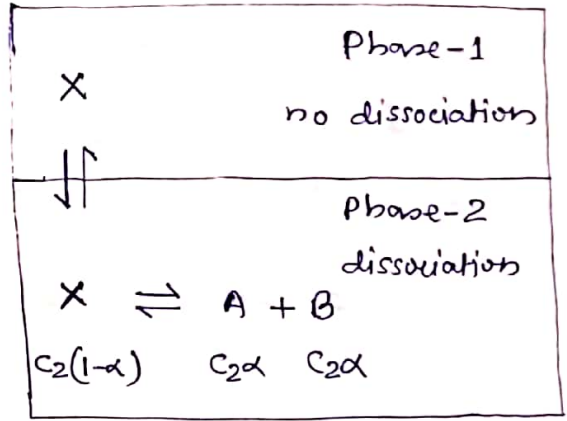 Phase-1
X
no dissociation
⇌
Phase-2
dissociation
X ⇌ A + B
C₂(1-α) C₂α C₂α